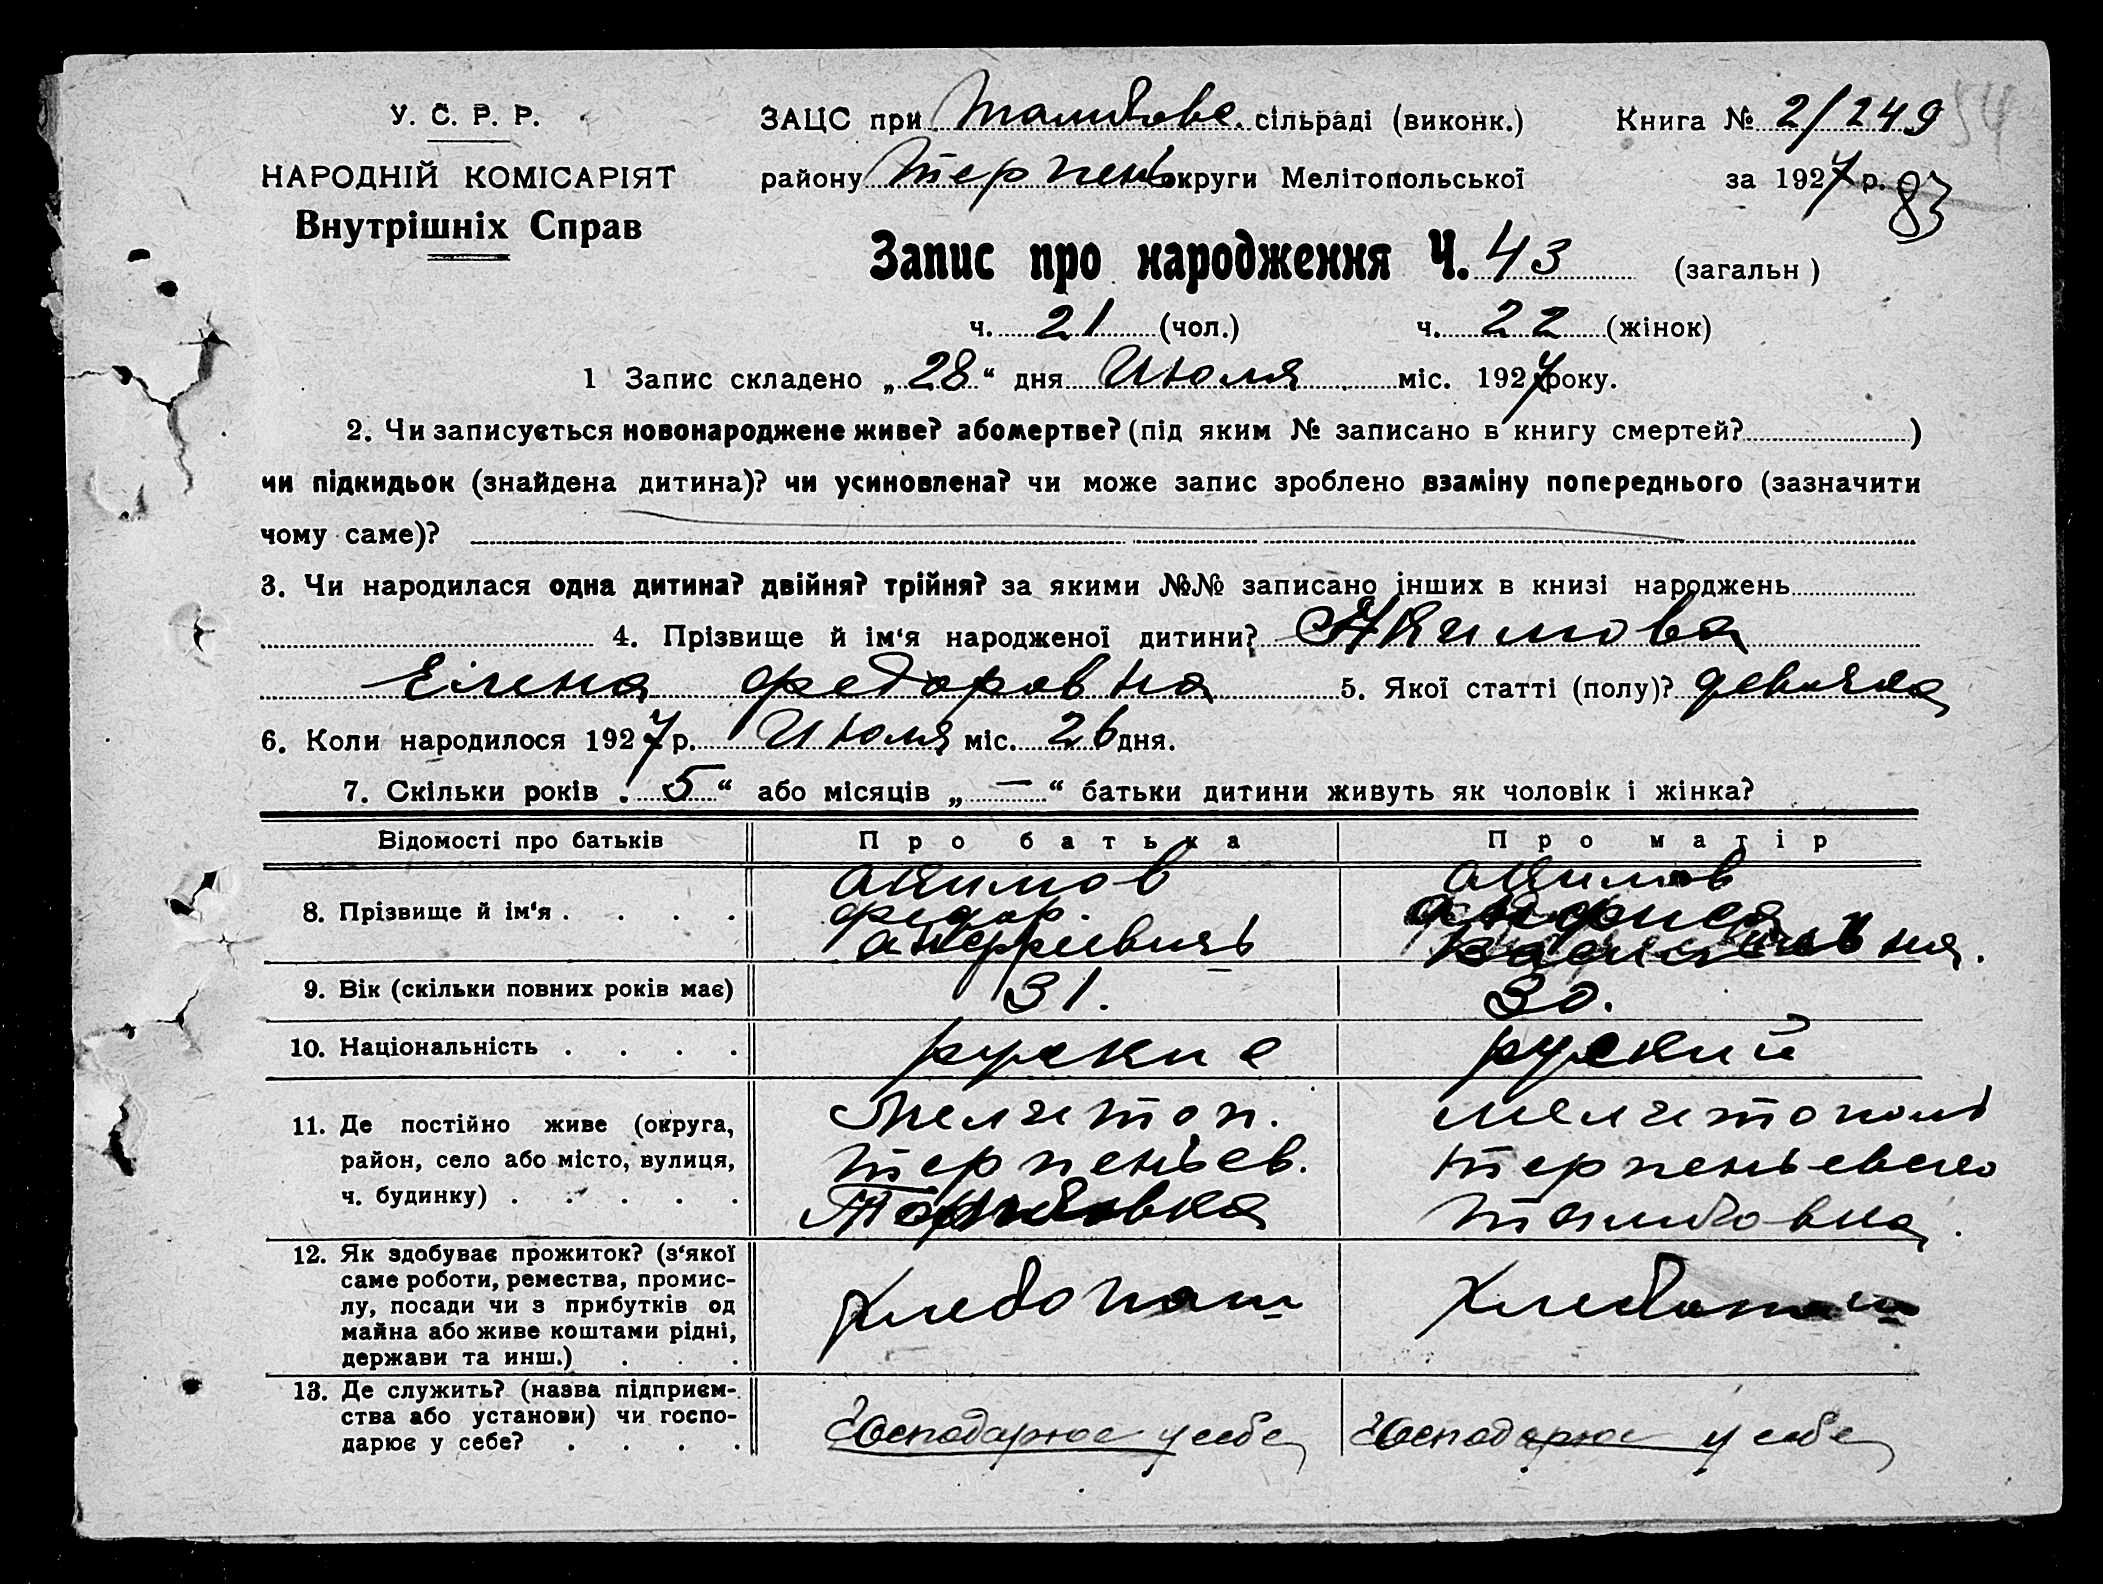 У. С. Р. Р.
НАРОДНІЙ КОМІСАРІЯТ
Внутрішніх Справ
ЗАЦС при Тамбове. сільраді (виконк.) Книга № 2/249
54
району Терпень округи Мелітопольської за 1927 р.
83
Запис про народження Ч. 43 (загальн )
ч. 21 (чол.) ч. 22 (жінок)
1 Запис складено „ 28 “ дня Июля міс. 1927 року.
2. Чи записується новонароджене живе? або мертве? (під яким № записано в книгу смертей? )
чи підкидьок (знайдена дитина)? чи усиновлена? чи може запис зроблено взаміну попереднього (зазначити
чому саме)?
3. Чи народилася одна дитина? двійня? трійня? за якими №№ записано інших в книзі народжень
4. Прізвище й ім‘я народженої дитини? Акимова
Елена Федоровна 5. Якої статті (полу)? девочка
6. Коли народилося 1927 р. Июля міс. 26 дня.
7. Скільки років „ 5 “ або місяців „ — “ батьки дитини живуть як чоловік і жінка?
Відомості про батьків Про батька Про матір
8. Прізвище й ім‘я . . . . Акимов Акимов
Федор.
Васильевна.
9. Вік (скільки повних років має) 31. 30.
10. Національність . . . . руские руский
11. Де постійно живе (округа, Мелитоп. Мелитополь
район, село або місто, вулиця, Терпеньев. Терпеньевско
ч. будинку) . . . . . Тамбовка Тамбовка.
12. Як здобуває прожиток? (з‘якої
саме роботи, ремества, промис-
лу, посади чи з прибутків од Хлебопаш Хлебопаш
майна або живе коштами рідні,
держави та инш.) . . .
13. Де служить? (назва підприєм-
ства або установи) чи госпо- Господарює у себе Господарює у себе
дарює у себе? . . . .